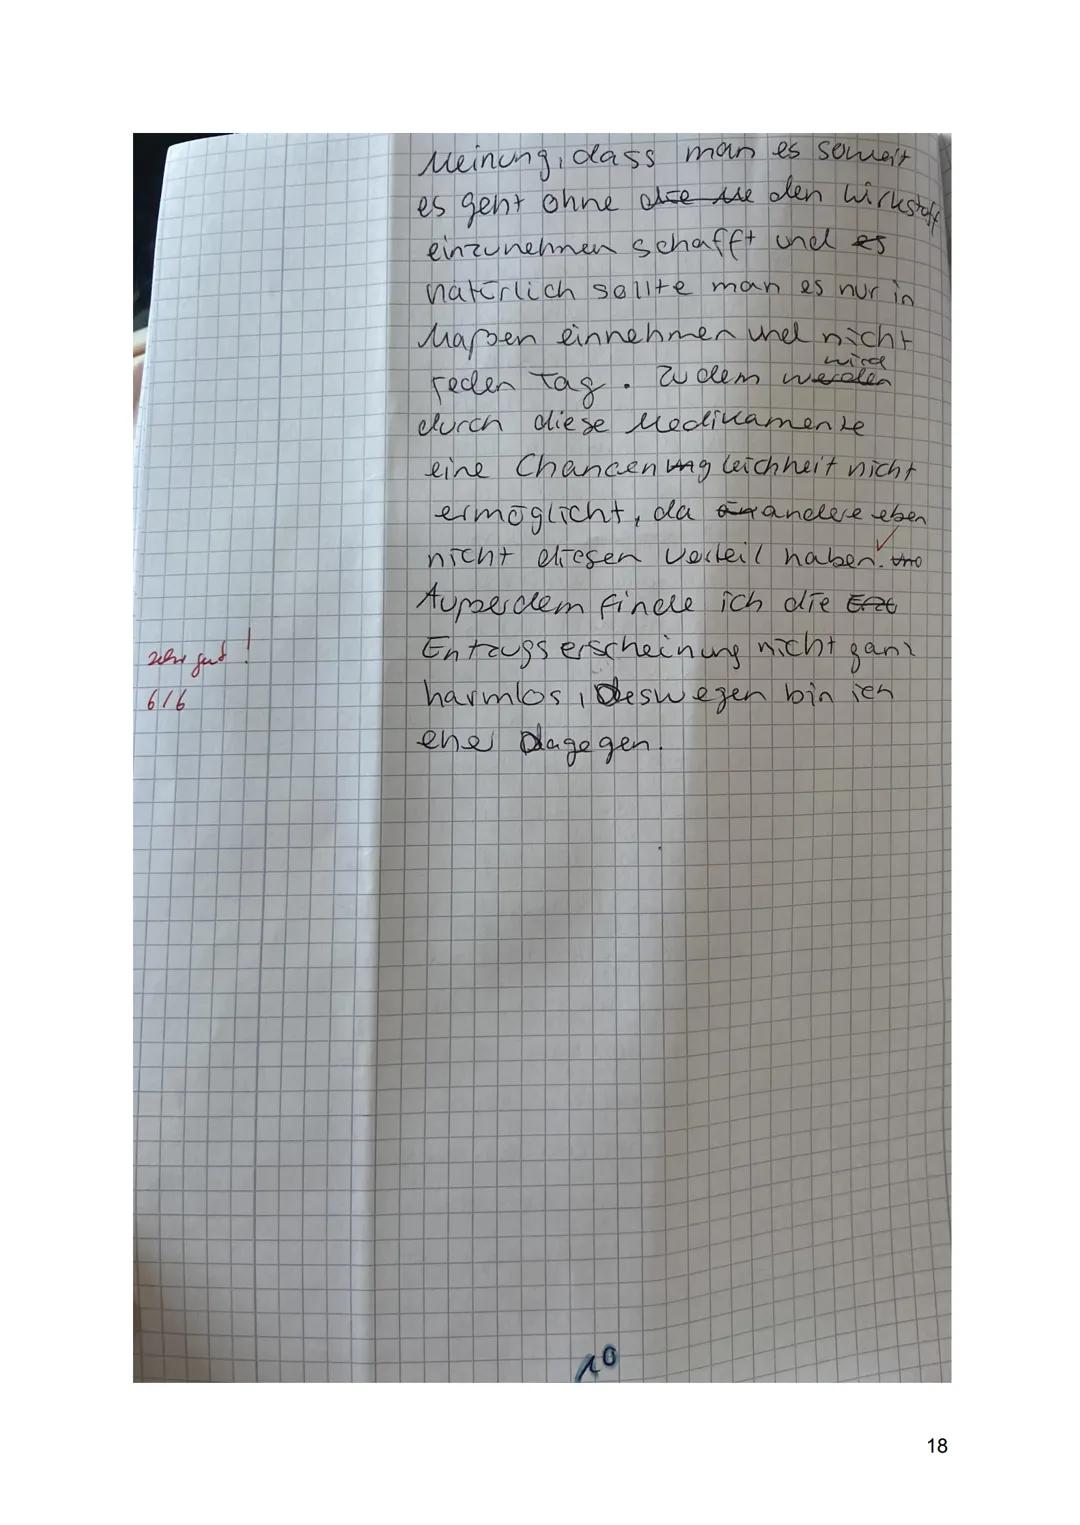 Meinung, dass man es soweit
es geht ohne die den Wirkstoff
einzunehmen schafft und es
natürlich sollte man es nur in
Maßen einnehmen und nicht
jeden Tag. Zudem werden wird
durch diese Medikamente
eine Chancenungleichheit nicht
ermöglicht, da andere eben
nicht diesen Vorteil haben.
Außerdem finde ich die
Entzugserscheinung nicht ganz
harmlos, Deswegen bin ich
ehe Dagegen.
sehr gut!
6/6
10
18